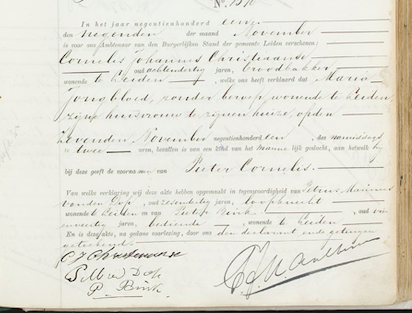 In het jaar negentienhonderd een,
den negenden der maand November
is voor ons Ambtenaar van den Burgerlijken Stand der gemeente Leiden verschenen:
Cornelis Johannes Christiaanse
oud achtendertig jaren, broodbakker,
wonende te Leiden, welke ons heeft verklaard dat Maria
Jongbloed, zonder beroep, wonende te Leiden
zijne huisvrouw te zijnen huize, op den
zevenden November negentienhonderd een, des namiddags
te twee uren, bevallen is van een kind van het mannelijk geslacht, aan hetwelk hij
bij deze geeft de voornamen van Pieter Cornelis.
Van welke verklaring wij deze akte hebben opgemaakt in tegenwoordigheid van Petrus Marinus
van den Dop, oud zesentwintig jaren, loopknecht,
wonende te Leiden en van Pieter Brink, oud vier
en veertig jaren, bediende, wonende te Leiden
En is deze akte, na gedane voorlezing, door ons, den declarant en de getuigen
geteekend.
C J Christiaanse
P. Brink